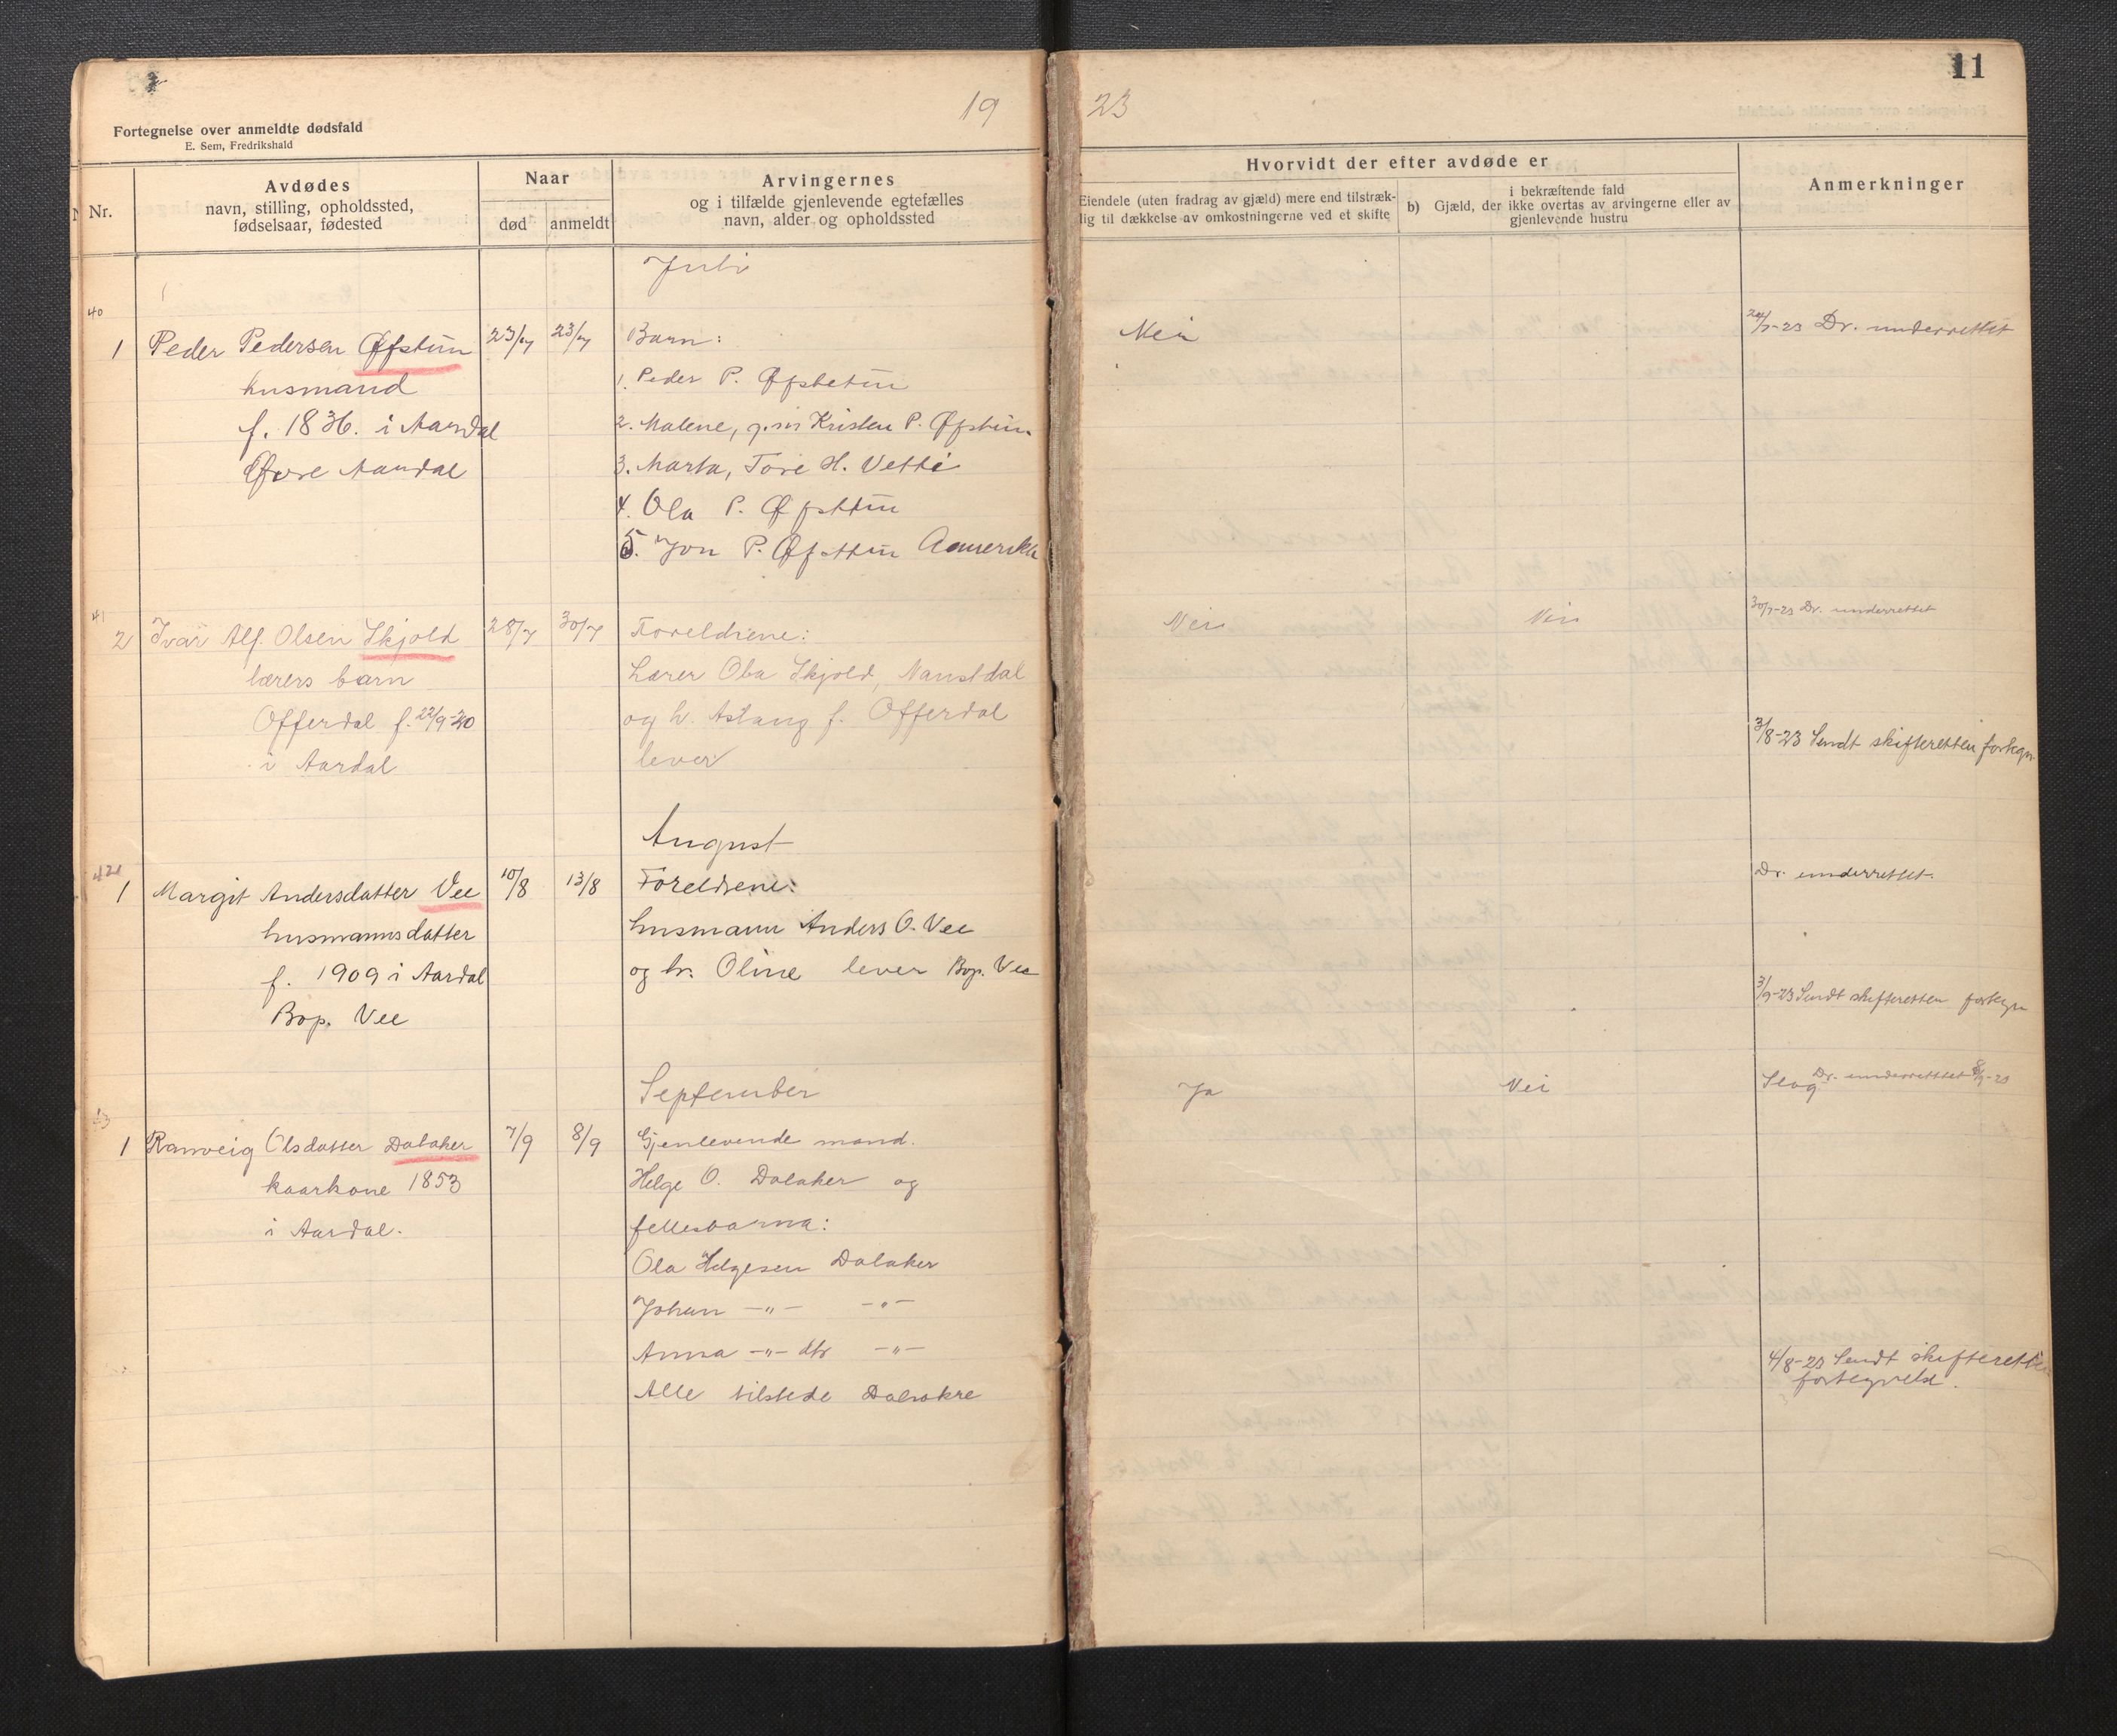 11
19 23
Fortegnelse over anmeldte dødsfald
E. Sem, Fredrikshald
Nr.
Avdødes
navn, stilling, opholdssted,
fødselsaar, fødested
Naar
død
anmeldt
Arvingernes
og i tilfælde gjenlevende egtefælles
navn, alder og opholdssted
Hvorvidt der efter avdøde er
Eiendele (uten fradrag av gjæld) mere end tilstræk-
lig til dækkelse av omkostningerne ved et skifte
b) Gjæld, der i bekræftende fald
ikke overtas av arvingerne eller av
gjenlevende hustru
Anmerkninger
Juli
40
1 Peder Pedersen Øfstün
husmand
f. 1836. i Aardal
Øvre Aardal
23/7 23/7
Barn:
1. Peder P. Øfstetün
2. Malene, g.m Kristen P. Øfstün.
3. Marta, Tore H. Vetti
4. Ola P. Øfsttün
5. Jon P. Øfsttün Aamerika
Nei
24/7-23 Dr. underrettet
41
2 Ivar Alf. Olsen Skjold
lærers barn
Offerdal f. 22/9-20
i Aardal
28/7 30/7
Foreldrene:
Lærer Ola Skjold, Naustdal
og h. Aslaug f. Offerdal
lever
Nei Nei
30/7-23 Dr. underrettet
3/8-23 Sendt skifteretten fortegn.
August
42
1 Margit Andersdatter Vee
husmannsdatter
f. 1909 i Aardal
Bop. Vee
10/8 13/8
Foreldrene:
husmann Anders O. Vee
og h. Oline lever Bop. Vee
Dr. underrettet.
3/9-23 Sendt skifteretten fortegn
September
43
1 Ranveig Olsdatter Dalaker
kaarkone 1853
i Aardal.
7/9 8/9
Gjenlevende mand.
Helge O. Dalaker og
fellesbarna:
Ola Helgesen Dalaker
Johan —"— —"—
Anna —"— dtr —"—
Alle tilstede Dalaker
Ja Nei
Slag Dr. underrettet 8/9-23
4/8-23 Sendt skifteretten
fortegnelse.